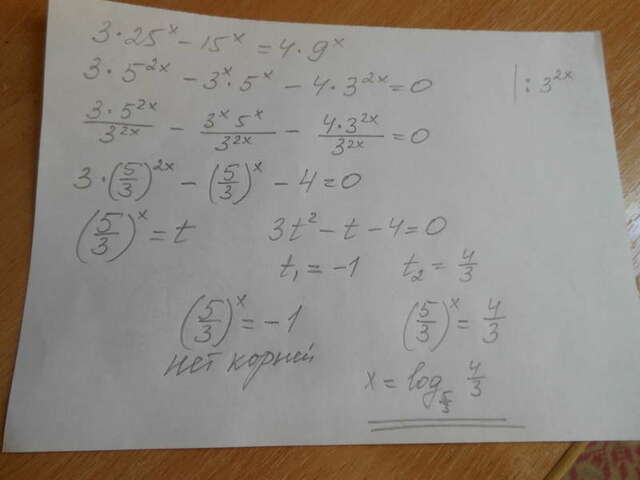 3·25ˣ − 15ˣ = 4·9ˣ
3·5²ˣ − 3ˣ·5ˣ − 4·3²ˣ = 0 | : 3²ˣ
3·5²ˣ/3²ˣ − 3ˣ5ˣ/3²ˣ − 4·3²ˣ/3²ˣ = 0
3·(5/3)²ˣ − (5/3)ˣ − 4 = 0
(5/3)ˣ = t 3t² − t − 4 = 0
t₁ = −1 t₂ = 4/3
(5/3)ˣ = −1 (5/3)ˣ = 4/3
нет корней
x = log₅/₃ 4/3